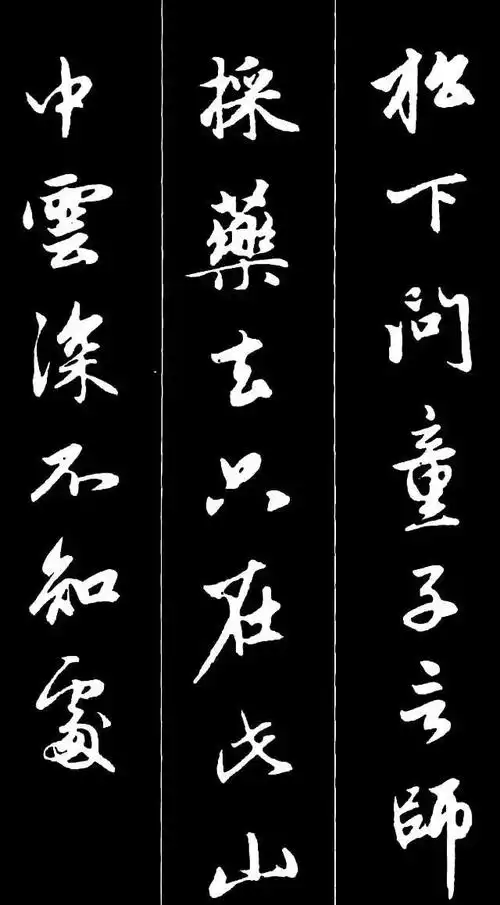 松下問童子言師
採藥去只在此山
中雲深不知處